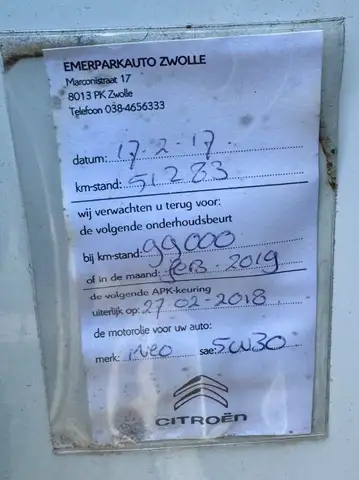 EMERPARKAUTO ZWOLLE
Marconistraat 17
8013 PK Zwolle
Telefoon 038-4656333
datum: 17-2-17
km-stand: 51283
wij verwachten u terug voor:
de volgende onderhoudsbeurt
bij km-stand: 99000
of in de maand: feb 2019
de volgende APK-keuring
uiterlijk op: 27-02-2018
de motorolie voor uw auto:
merk: ineo sae: 5W30
CITROËN